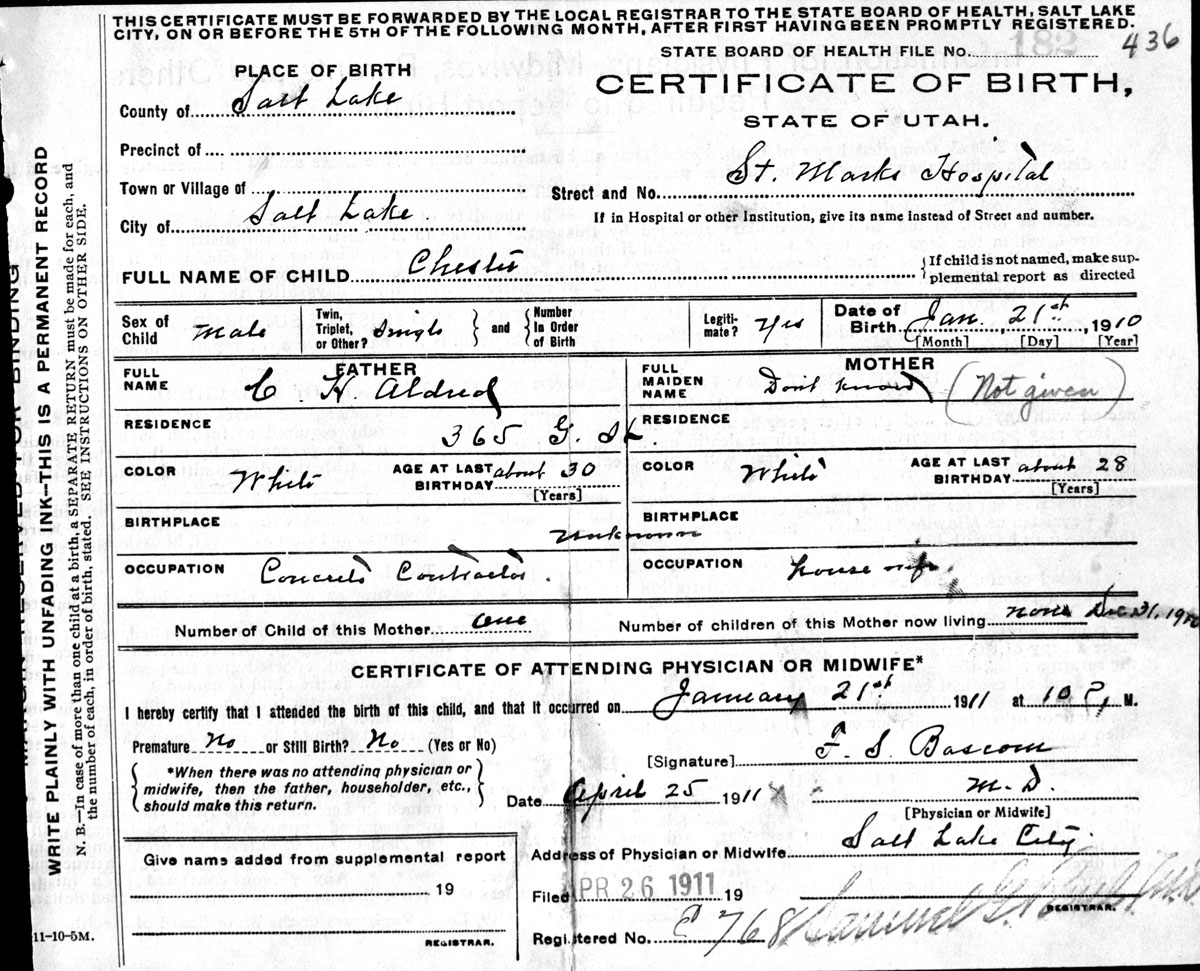 THIS CERTIFICATE MUST BE FORWARDED BY THE LOCAL REGISTRAR TO THE STATE BOARD OF HEALTH, SALT LAKE
CITY, ON OR BEFORE THE 5TH OF THE FOLLOWING MONTH, AFTER FIRST HAVING BEEN PROMPTLY REGISTERED.
STATE BOARD OF HEALTH FILE No. 182 436
PLACE OF BIRTH
CERTIFICATE OF BIRTH,
County of Salt Lake
STATE OF UTAH.
Precinct of
Town or Village of
Street and No. St. Marks Hospital
City of Salt Lake
If in Hospital or other Institution, give its name instead of Street and number.
FULL NAME OF CHILD Chester
{If child is not named, make sup-
plemental report as directed
Sex of Child Male
Twin, Triplet, or Other? Single
and
Number In Order of Birth
Legiti-mate? Yes
Date of Birth Jan. 21st, 1910
[Month] [Day] [Year]
FATHER
FULL NAME C H Aldred
MOTHER
FULL MAIDEN NAME Don't know (Not given)
RESIDENCE 365 G. St.
RESIDENCE
COLOR White
AGE AT LAST BIRTHDAY about 30
[Years]
COLOR White
AGE AT LAST BIRTHDAY about 28
[Years]
BIRTHPLACE Unknown
BIRTHPLACE
OCCUPATION Concrete Contractor.
OCCUPATION house wife.
Number of Child of this Mother one
Number of children of this Mother now living none Dec. 31, 1910
CERTIFICATE OF ATTENDING PHYSICIAN OR MIDWIFE*
I hereby certify that I attended the birth of this child, and that it occurred on January 21st 1911 at 10 P, M.
Premature No or Still Birth? No (Yes or No)
[Signature] F. S. Bascom
*When there was no attending physician or
midwife, then the father, householder, etc.,
should make this return.
Date April 25 1911
M. D.
[Physician or Midwife]
Give name added from supplemental report
19
REGISTRAR.
Address of Physician or Midwife Salt Lake City
Filed PR 26 1911 19
REGISTRAR.
Registered No. 768
11-10-5M.
MARGIN RESERVED FOR BINDING
WRITE PLAINLY WITH UNFADING INK—THIS IS A PERMANENT RECORD
N. B.—In case of more than one child at a birth, a SEPARATE RETURN must be made for each, and
the number of each, in order of birth, stated. SEE INSTRUCTIONS ON OTHER SIDE.